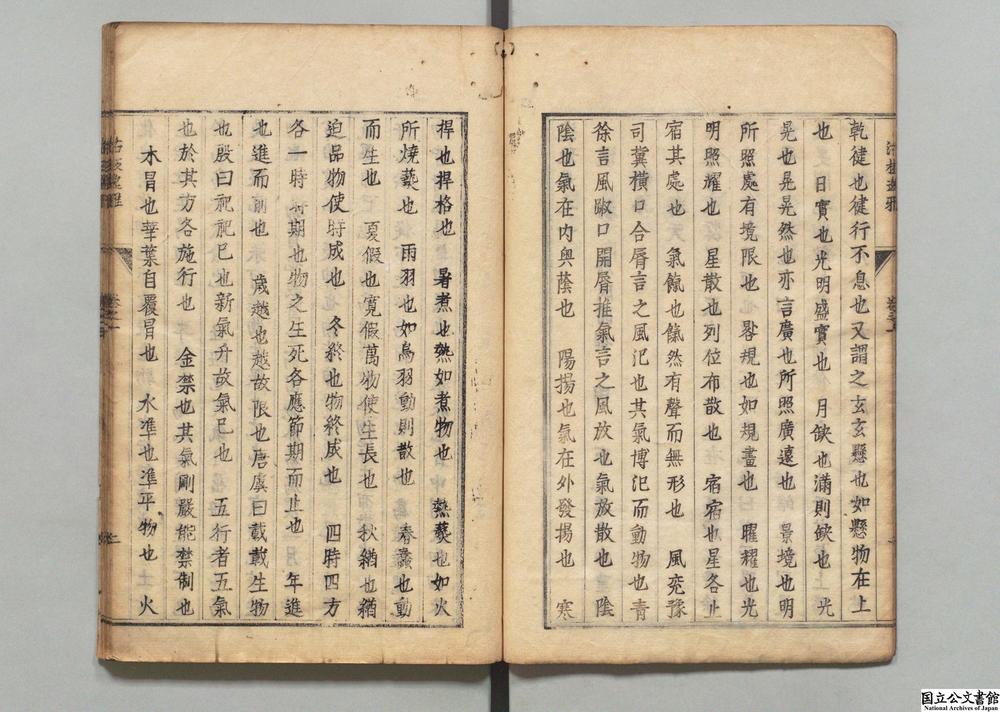 乾健也健行不息也又謂之玄玄懸也如懸物在上
也　日實也光明盛實也　月缺也滿則缺也　光
晃也晃晃然也亦言廣也所照廣遠也　景境也明
所照處有境限也　晷規也如規畫也　曜耀也光
明照耀也　星散也列位布散也　宿宿也星各止
宿其處也　氣餼也餼然有聲而無形也　風兖豫
司冀橫口合脣言之風氾也其氣博氾而動物也青
徐言風踧口開脣推氣言之風放也氣放散也　陰
陰也氣在內奥蔭也　陽揚也氣在外發揚也　寒
捍也捍格也　暑煮也熱如煮物也　熱爇也如火
所燒爇也　雨羽也如鳥羽動則散也　春蠢也動
而生也　夏假也寬假萬物使生長也　秋緧也緧
迫品物使時成也　冬終也物終成也　四時四方
各一時時期也物之生死各應節期而止也　年進
也進而前也　歲越也越故限也唐虞曰載載生物
也殷曰祀祀巳也新氣升故氣巳也　五行者五氣
也於其方各施行也　金禁也其氣剛嚴能禁制也
木冒也華葉自覆冒也　水準也準平物也　火
国立公文書館
National Archives of Japan